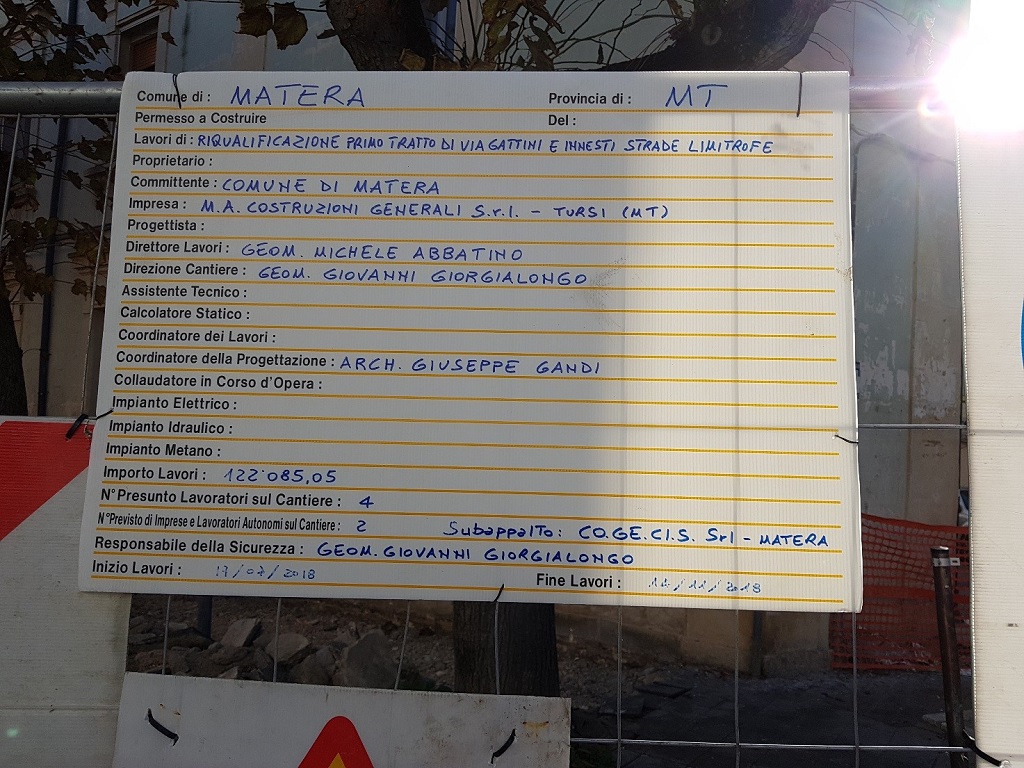 Comune di : MATERA Provincia di : MT
Permesso a Costruire Del :
Lavori di : RIQUALIFICAZIONE PRIMO TRATTO DI VIA GATTINI E INNESTI STRADE LIMITROFE
Proprietario :
Committente : COMUNE DI MATERA
Impresa : M.A. COSTRUZIONI GENERALI S.r.l. - TURSI (MT)
Progettista :
Direttore Lavori : GEOM. MICHELE ABBATINO
Direzione Cantiere : GEOM. GIOVANNI GIORGIALONGO
Assistente Tecnico :
Calcolatore Statico :
Coordinatore dei Lavori :
Coordinatore della Progettazione : ARCH. GIUSEPPE GANDI
Collaudatore in Corso d'Opera :
Impianto Elettrico :
Impianto Idraulico :
Impianto Metano :
Importo Lavori : 122'085,05
N° Presunto Lavoratori sul Cantiere : 4
N° Previsto di Imprese e Lavoratori Autonomi sul Cantiere : 2 Subappalto: CO.GE.CI.S. Srl - MATERA
Responsabile della Sicurezza : GEOM. GIOVANNI GIORGIALONGO
Inizio Lavori : 17/07/2018 Fine Lavori : 14/11/2018